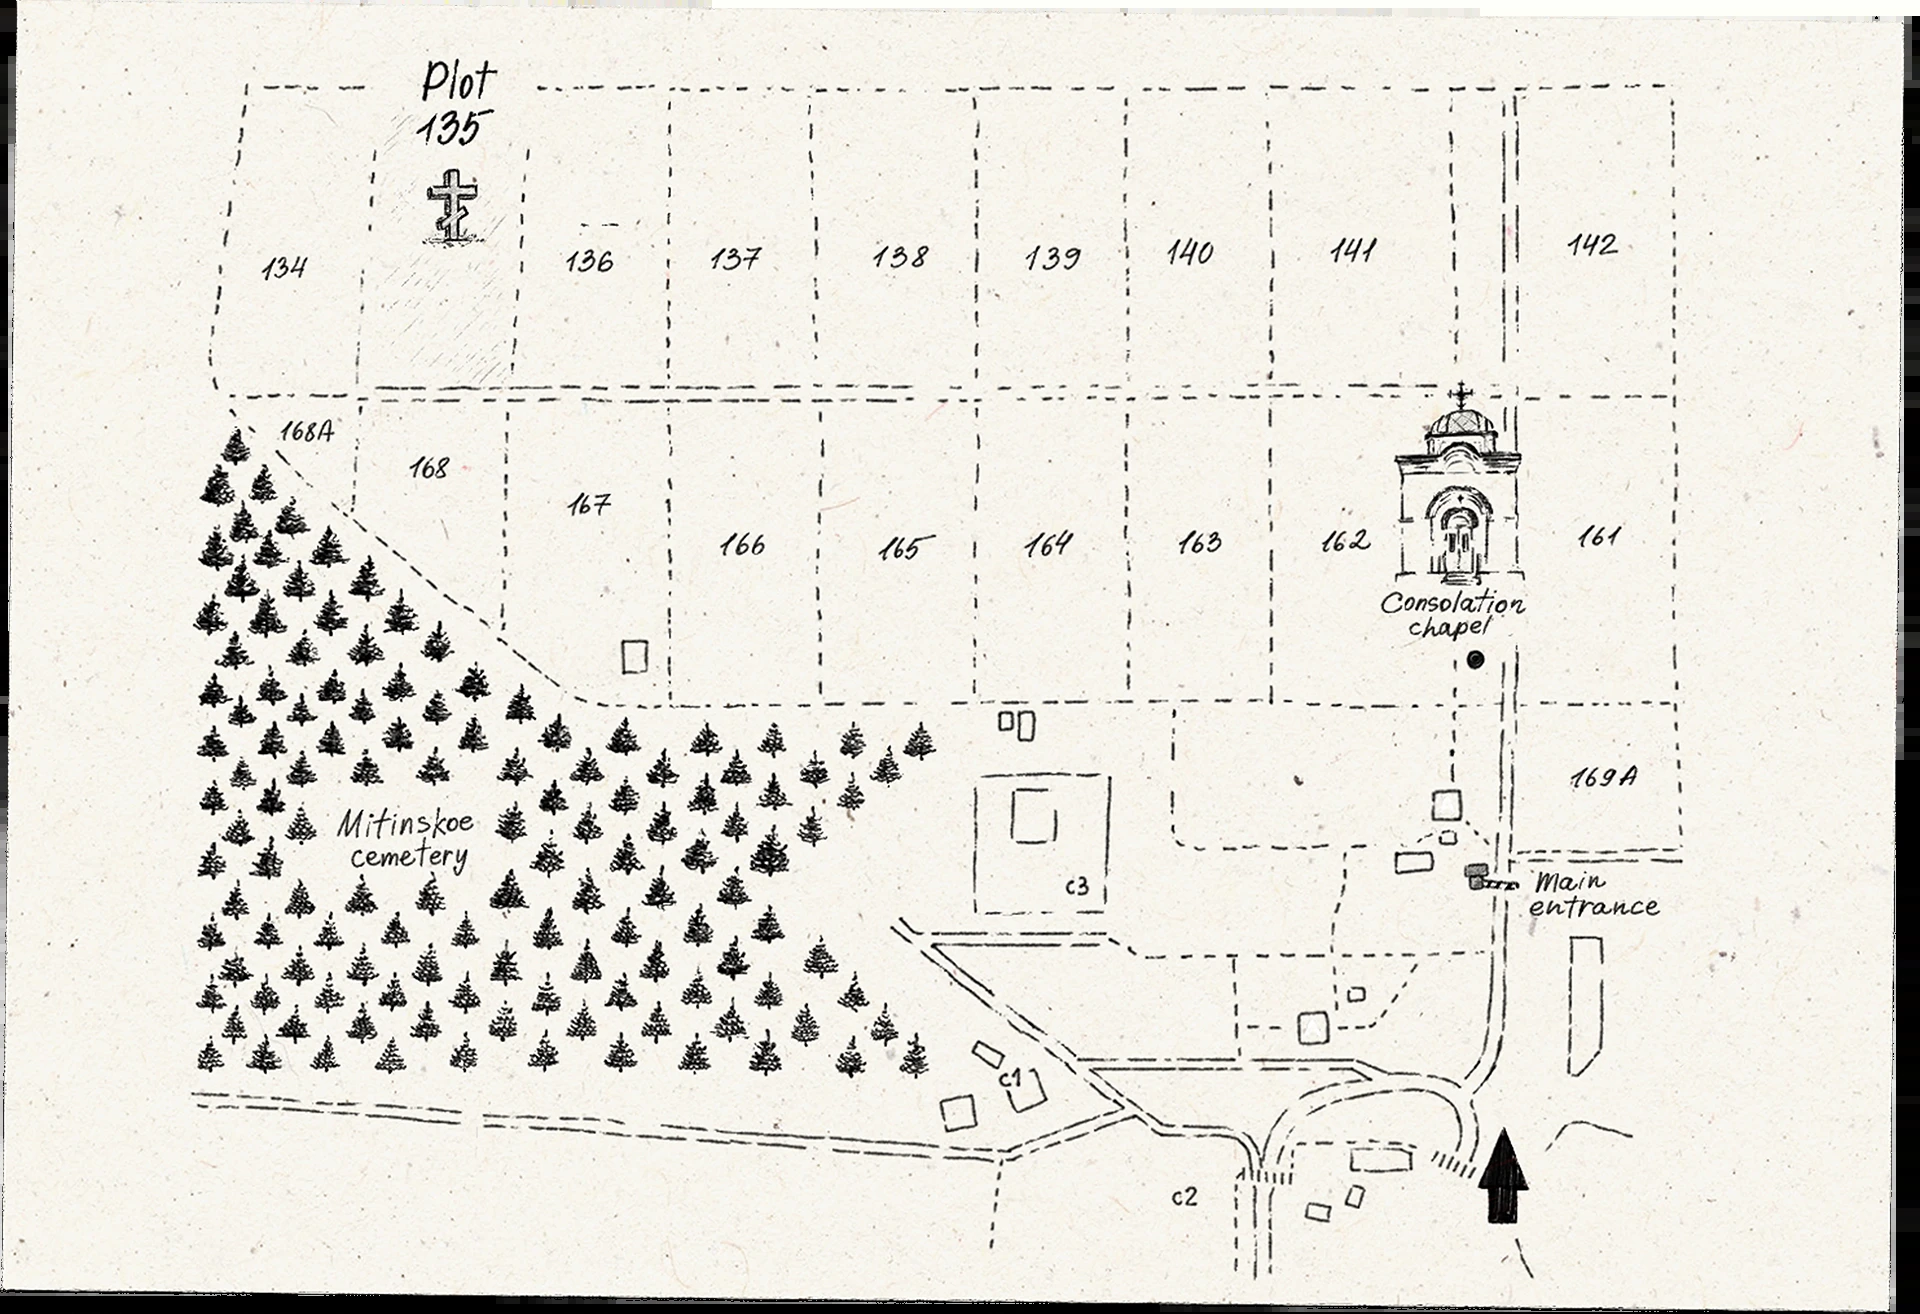 Plot
135
134
136
137
138
139
140
141
142
168A
168
167
166
165
164
163
162
161
Consolation
chapel
169A
Mitinskoe
cemetery
c3
Main
entrance
c1
c2